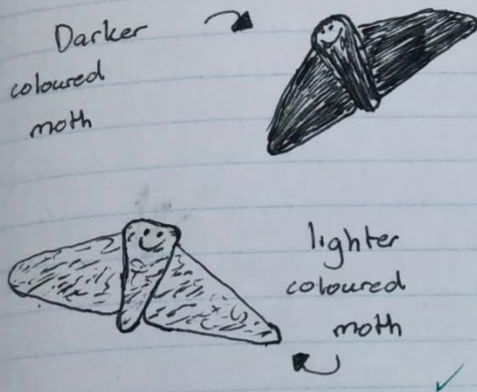 Darker
coloured
moth
lighter
coloured
moth